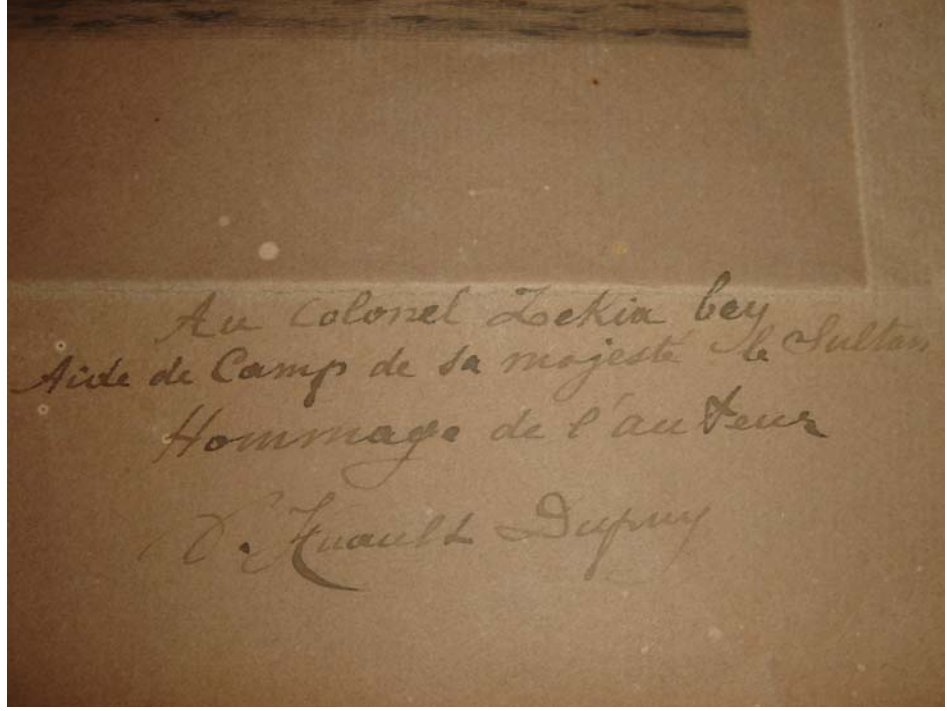 Au Colonel Zekia bey
Aide de Camp de sa majesté le Sultan
Hommage de l'auteur
Dupuy